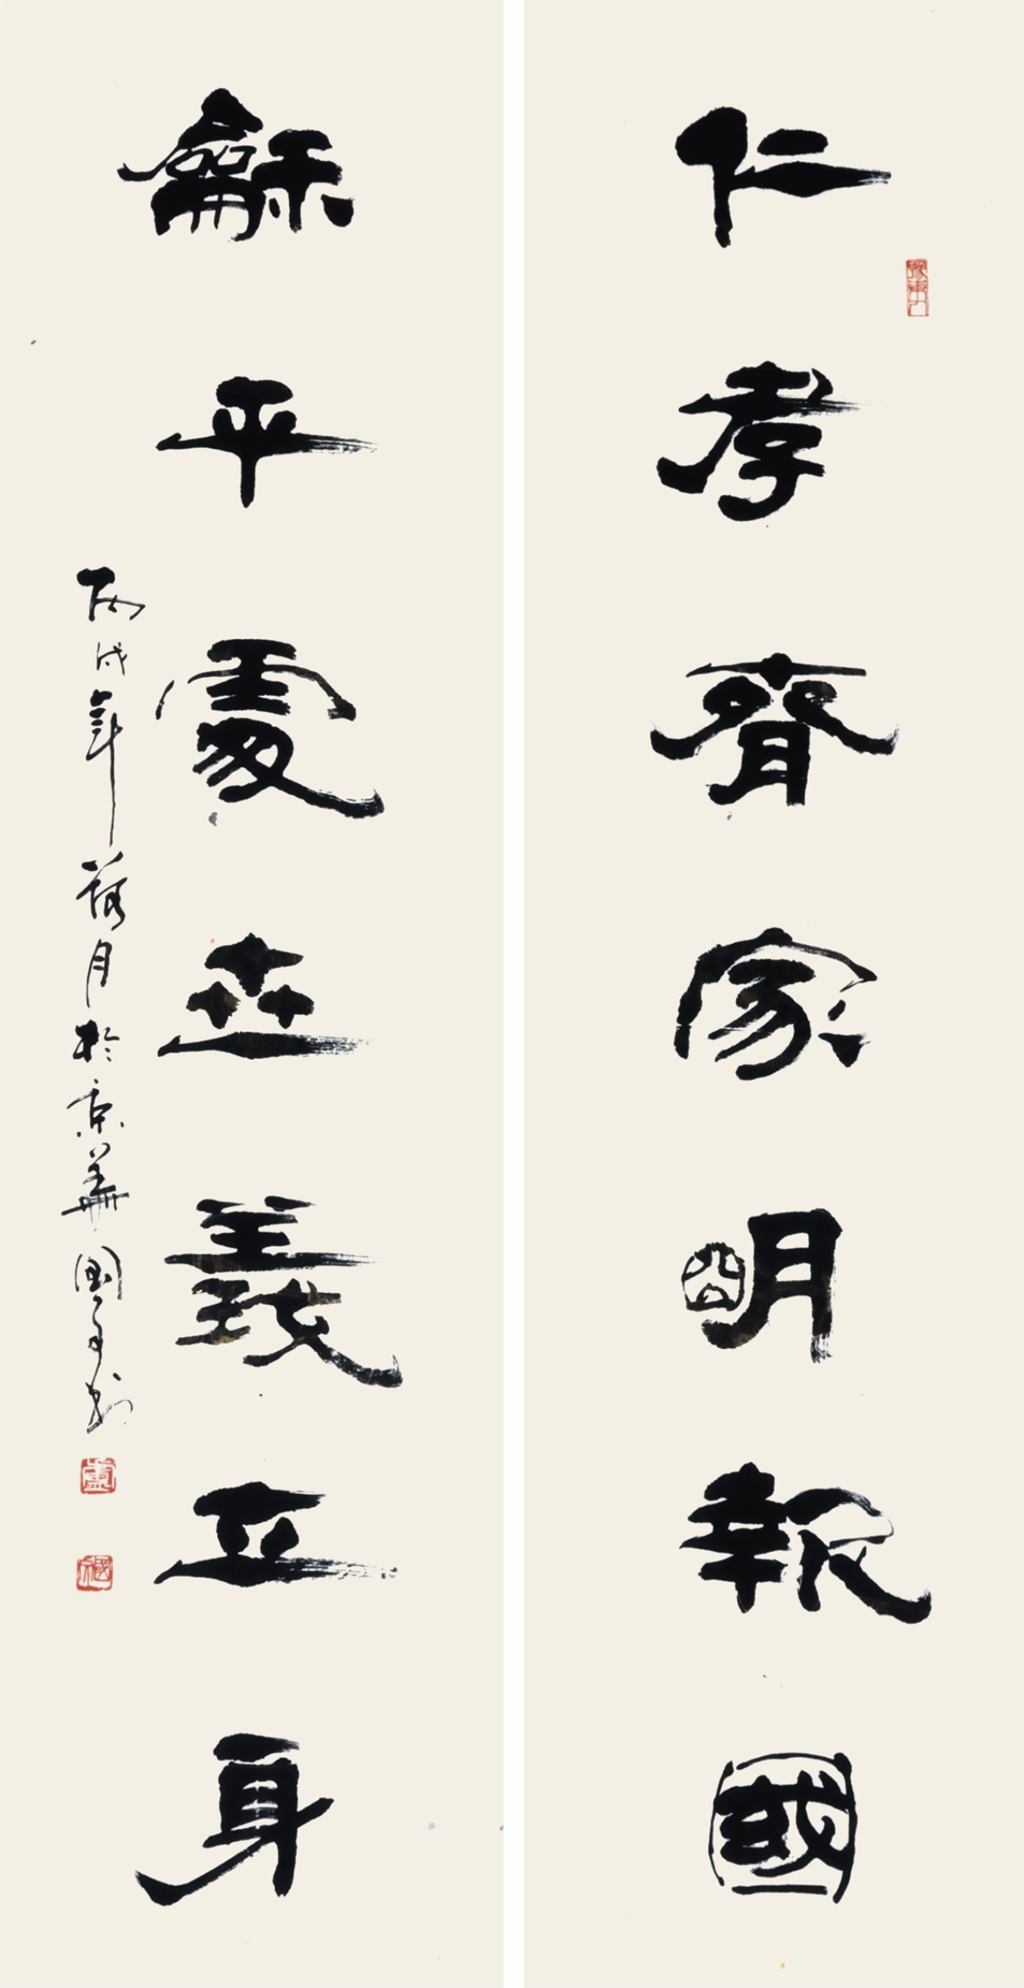 仁孝齊家朙報國
龢平處世義立身
丙戌年月於京華國書